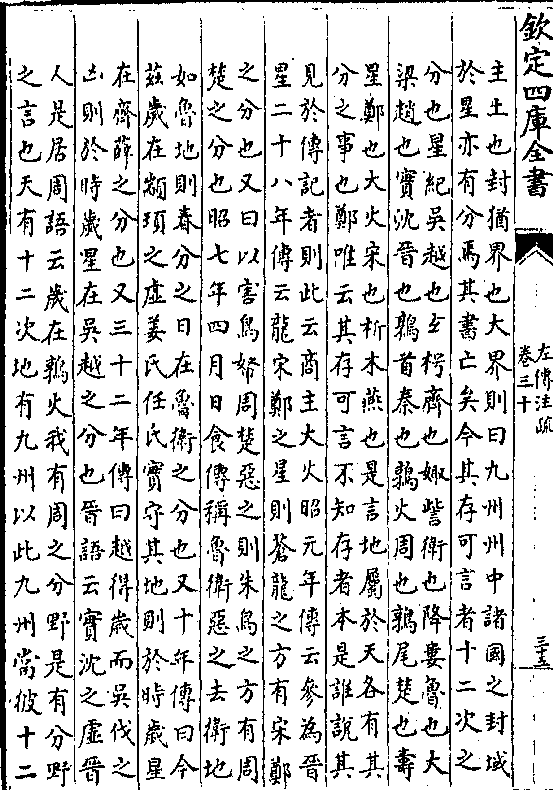 欽定四庫全書
左傳注疏
卷三十
三十五
主土也封猶界也大界則曰九州州中諸國之封域
於星亦有分焉其書亡矣今其存可言者十二次之
分也星紀吳越也玄枵齊也娵訾衛也降婁魯也大
梁趙也實沈晉也鶉首秦也鶉火周也鶉尾楚也壽
星鄭也大火宋也析木燕也是言地屬於天各有其
分之事也鄭唯云其存可言不知存者本是誰說其
見於傳記者則此云商主大火昭元年傳云參為晉
星二十八年傳云龍宋鄭之星則蒼龍之方有宋鄭
之分也又曰以害鳥帑周楚惡之則朱鳥之方有周
楚之分也昭七年四月日食傳稱魯衛惡之去衛地
如魯地則春分之日在魯衛之分也又十年傳曰今
茲歲在顓頊之虛姜氏任氏實守其地則於時歲星
在齊薛之分也又三十二年傳曰越得歲而吳伐之
凶則於時歲星在吳越之分也晉語云實沈之虛晉
人是居周語云歲在鶉火我有周之分野是有分野
之言也天有十二次地有九州以此九州當彼十二